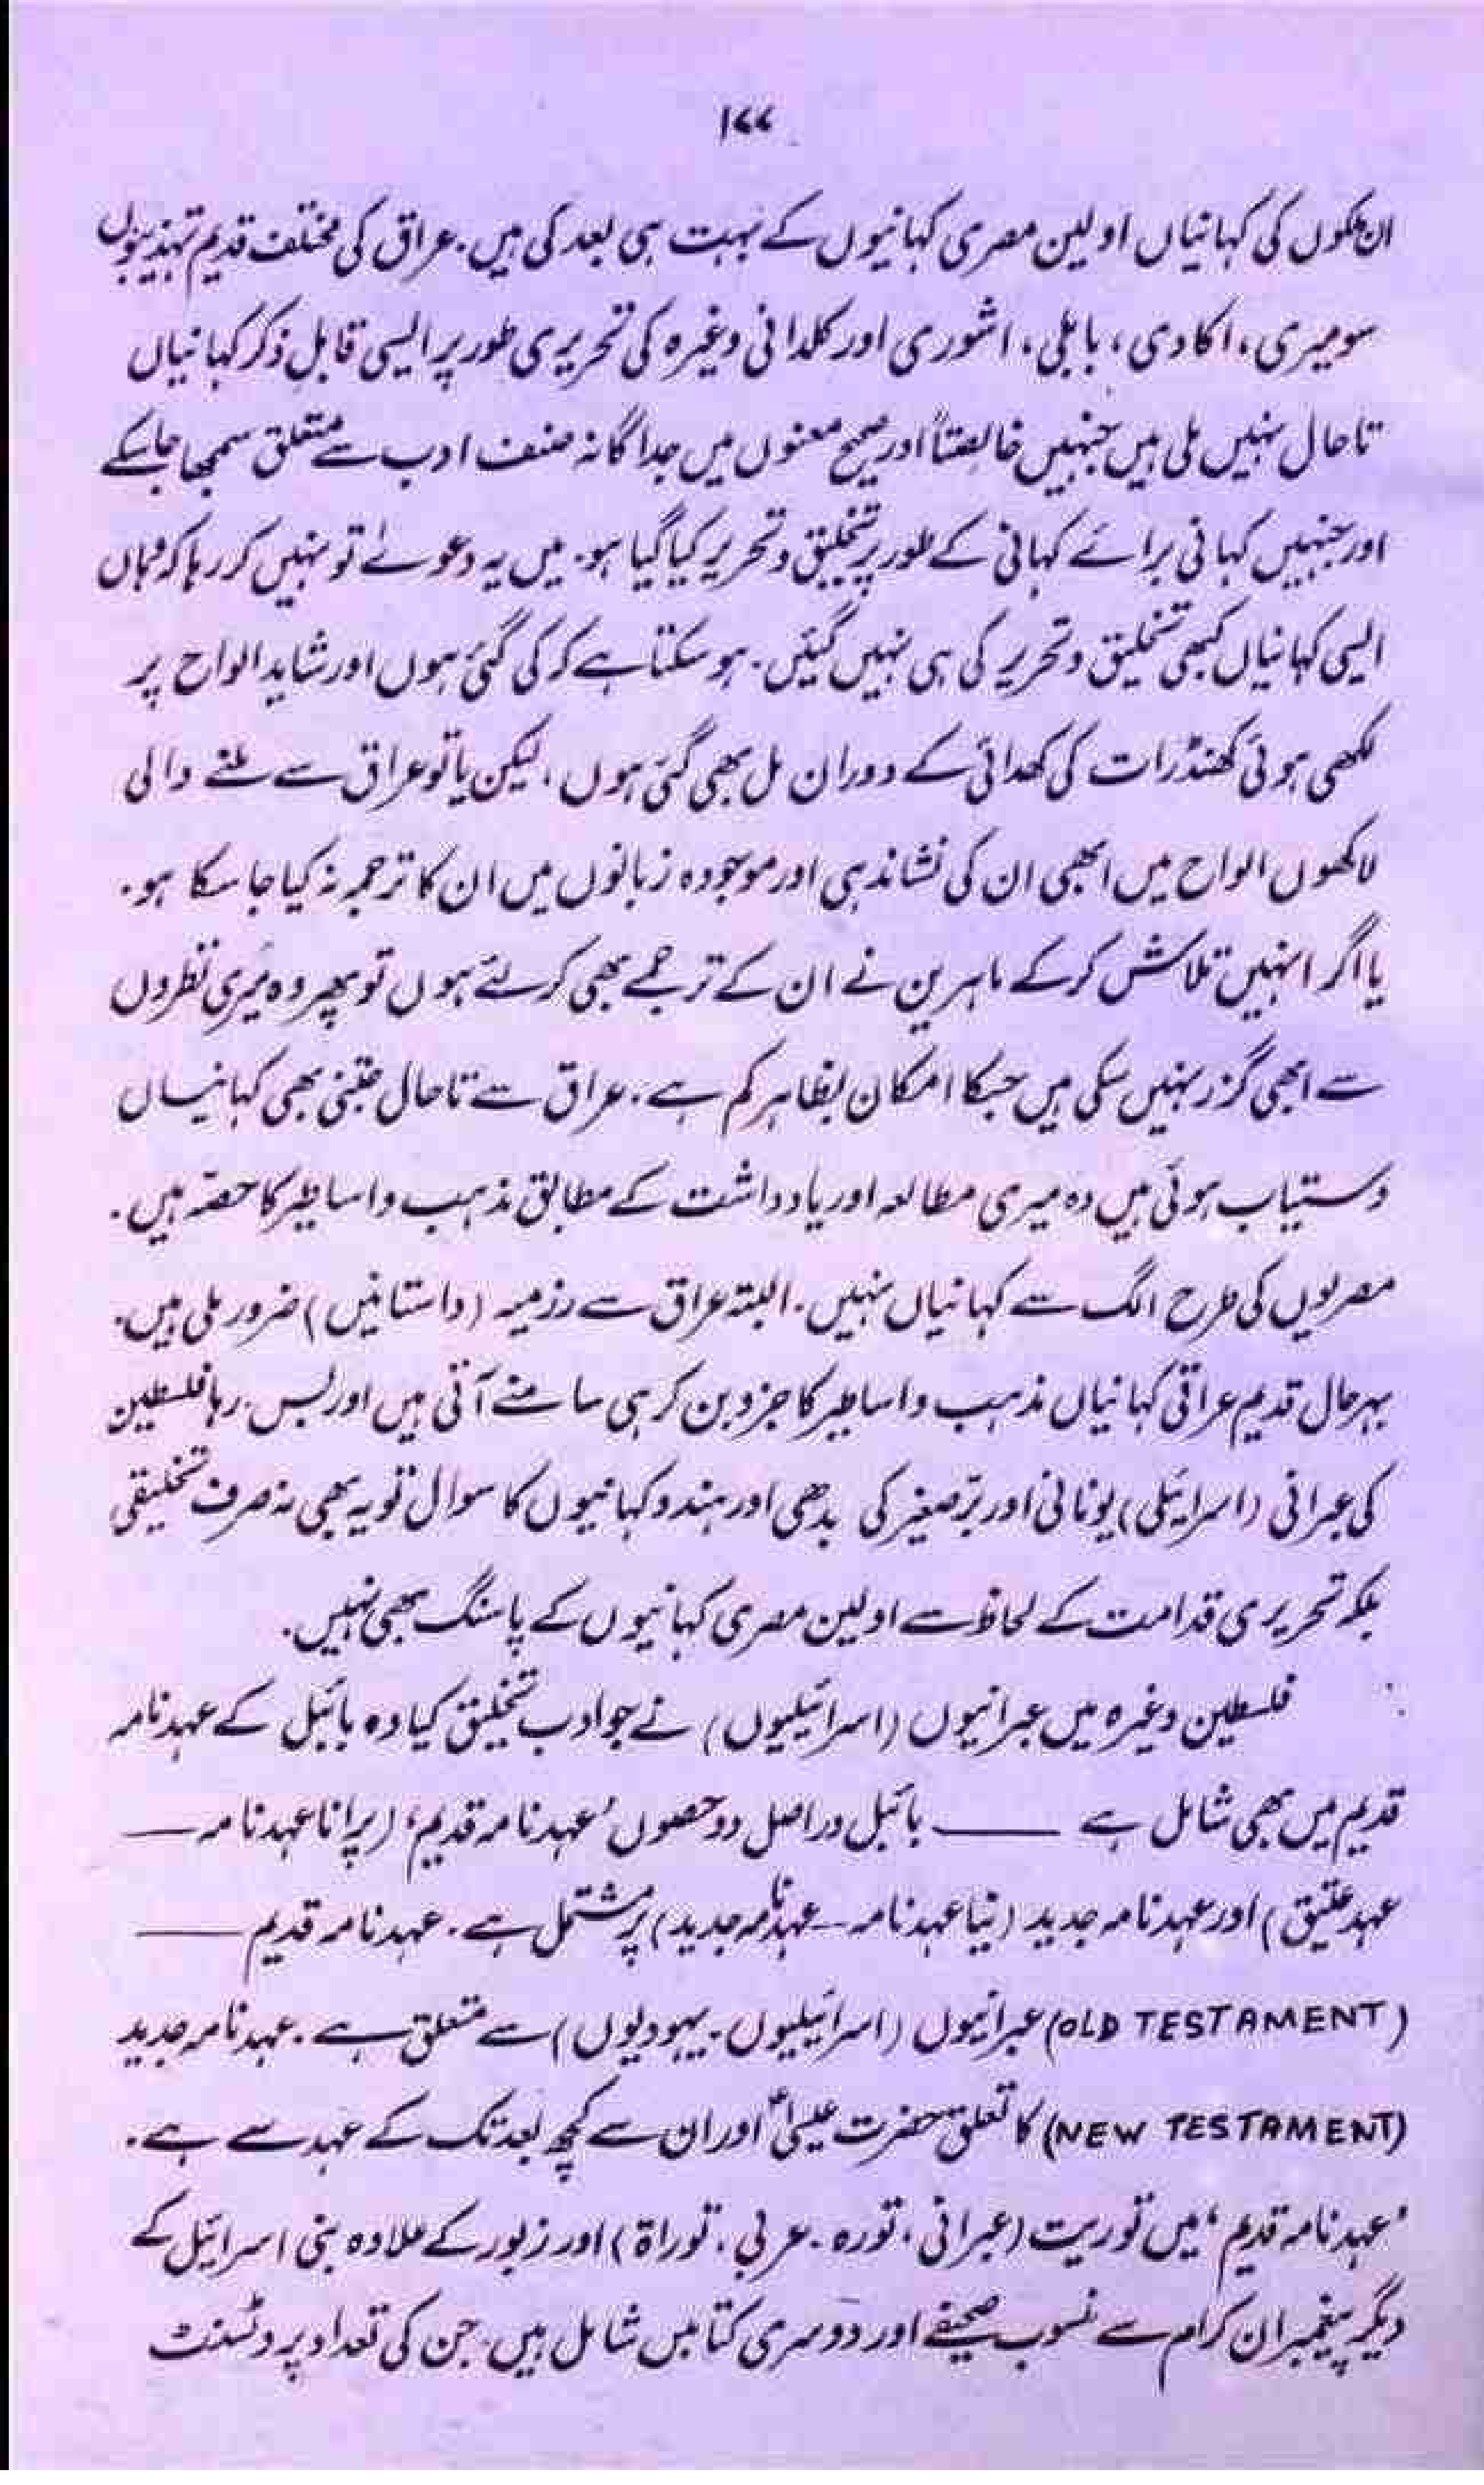 ۱۷۷
ان ملکوں کی کہانیاں اولین مصری کہانیوں کے بہت ہی بعد کی ہیں۔ عراق کی مختلف قدیم تہذیبوں
سومیری، اکادی، بابلی، اشوری اور کلدانی وغیرہ کی تحریری طور پر ایسی قابلِ ذکر کہانیاں
تاحال نہیں ملی ہیں جنہیں خالصتاً اور صحیح معنوں میں جداگانہ صنف ادب سے متعلق سمجھا جا سکے
اور جنہیں کہانی برائے کہانی کے طور پر تخلیق و تحریر کیا گیا ہو۔ میں یہ دعوےٰ تو نہیں کر رہا کہ وہاں
ایسی کہانیاں کبھی تخلیق و تحریر کی ہی نہیں گئیں۔ ہو سکتا ہے کہ کی گئی ہوں اور شاید الواح پر
لکھی ہوئی کھنڈرات کی کھدائی کے دوران مل بھی گئی ہوں، لیکن یا تو عراق سے ملنے والی
لاکھوں الواح میں ابھی ان کی نشاندہی اور موجودہ زبانوں میں ان کا ترجمہ نہ کیا جا سکا ہو۔
یا اگر انہیں تلاش کر کے ماہرین نے ان کے ترجمے بھی کر لئے ہوں تو پھر وہ میری نظروں
سے ابھی گزر نہیں سکی ہیں جسکا امکان بظاہر کم ہے۔ عراق سے تاحال جتنی بھی کہانیاں
دستیاب ہوئی ہیں وہ میری مطالعہ اور یادداشت کے مطابق مذہب و اساطیر کا حصّہ ہیں۔
مصریوں کی طرح الگ سے کہانیاں نہیں۔ البتہ عراق سے رزمیہ (داستانیں) ضرور ملی ہیں۔
بہرحال قدیم عراقی کہانیاں مذہب و اساطیر کا جزو بن کر ہی سامنے آتی ہیں اور بس۔ رہا فلسطین
کی عبرانی (اسرایئلی) یونانی اور برّصغیر کی بدھی اور ہندو کہانیوں کا سوال تو یہ بھی نہ صرف تخلیقی
بلکہ تحریری قدامت کے لحاظ سے اولین مصری کہانیوں کے پاسنگ بھی نہیں۔
فلسطین وغیرہ میں عبرانیوں (اسرائیلیوں) نے جو ادب تخلیق کیا وہ بائبل کے عہدنامہ
قدیم میں بھی شامل ہے —— بائبل دراصل دو حصوں ’عہدنامہ قدیم‘ (پرانا عہدنامہ —
عہد عتیق) اور عہدنامہ جدید (نیا عہدنامہ – عہدنامہ جدید) پر مشتمل ہے۔ عہدنامہ قدیم ——
(OLD TESTAMENT) عبرانیوں (اسرائیلیوں۔ یہودیوں) سے متعلق ہے۔ عہدنامہ جدید
(NEW TESTAMENT) کا تعلق حضرت عیسیٰؑ اور ان سے کچھ بعد تک کے عہد سے ہے۔
’عہدنامہ قدیم‘ میں توریت (عبرانی، تورہ۔ عربی، توراۃ) اور زبور کے علاوہ بنی اسرائیل کے
دیگر پیغمبران کرام سے منسوب صحیفے اور دوسری کتابیں شامل ہیں۔ جن کی تعداد پروٹسنٹ